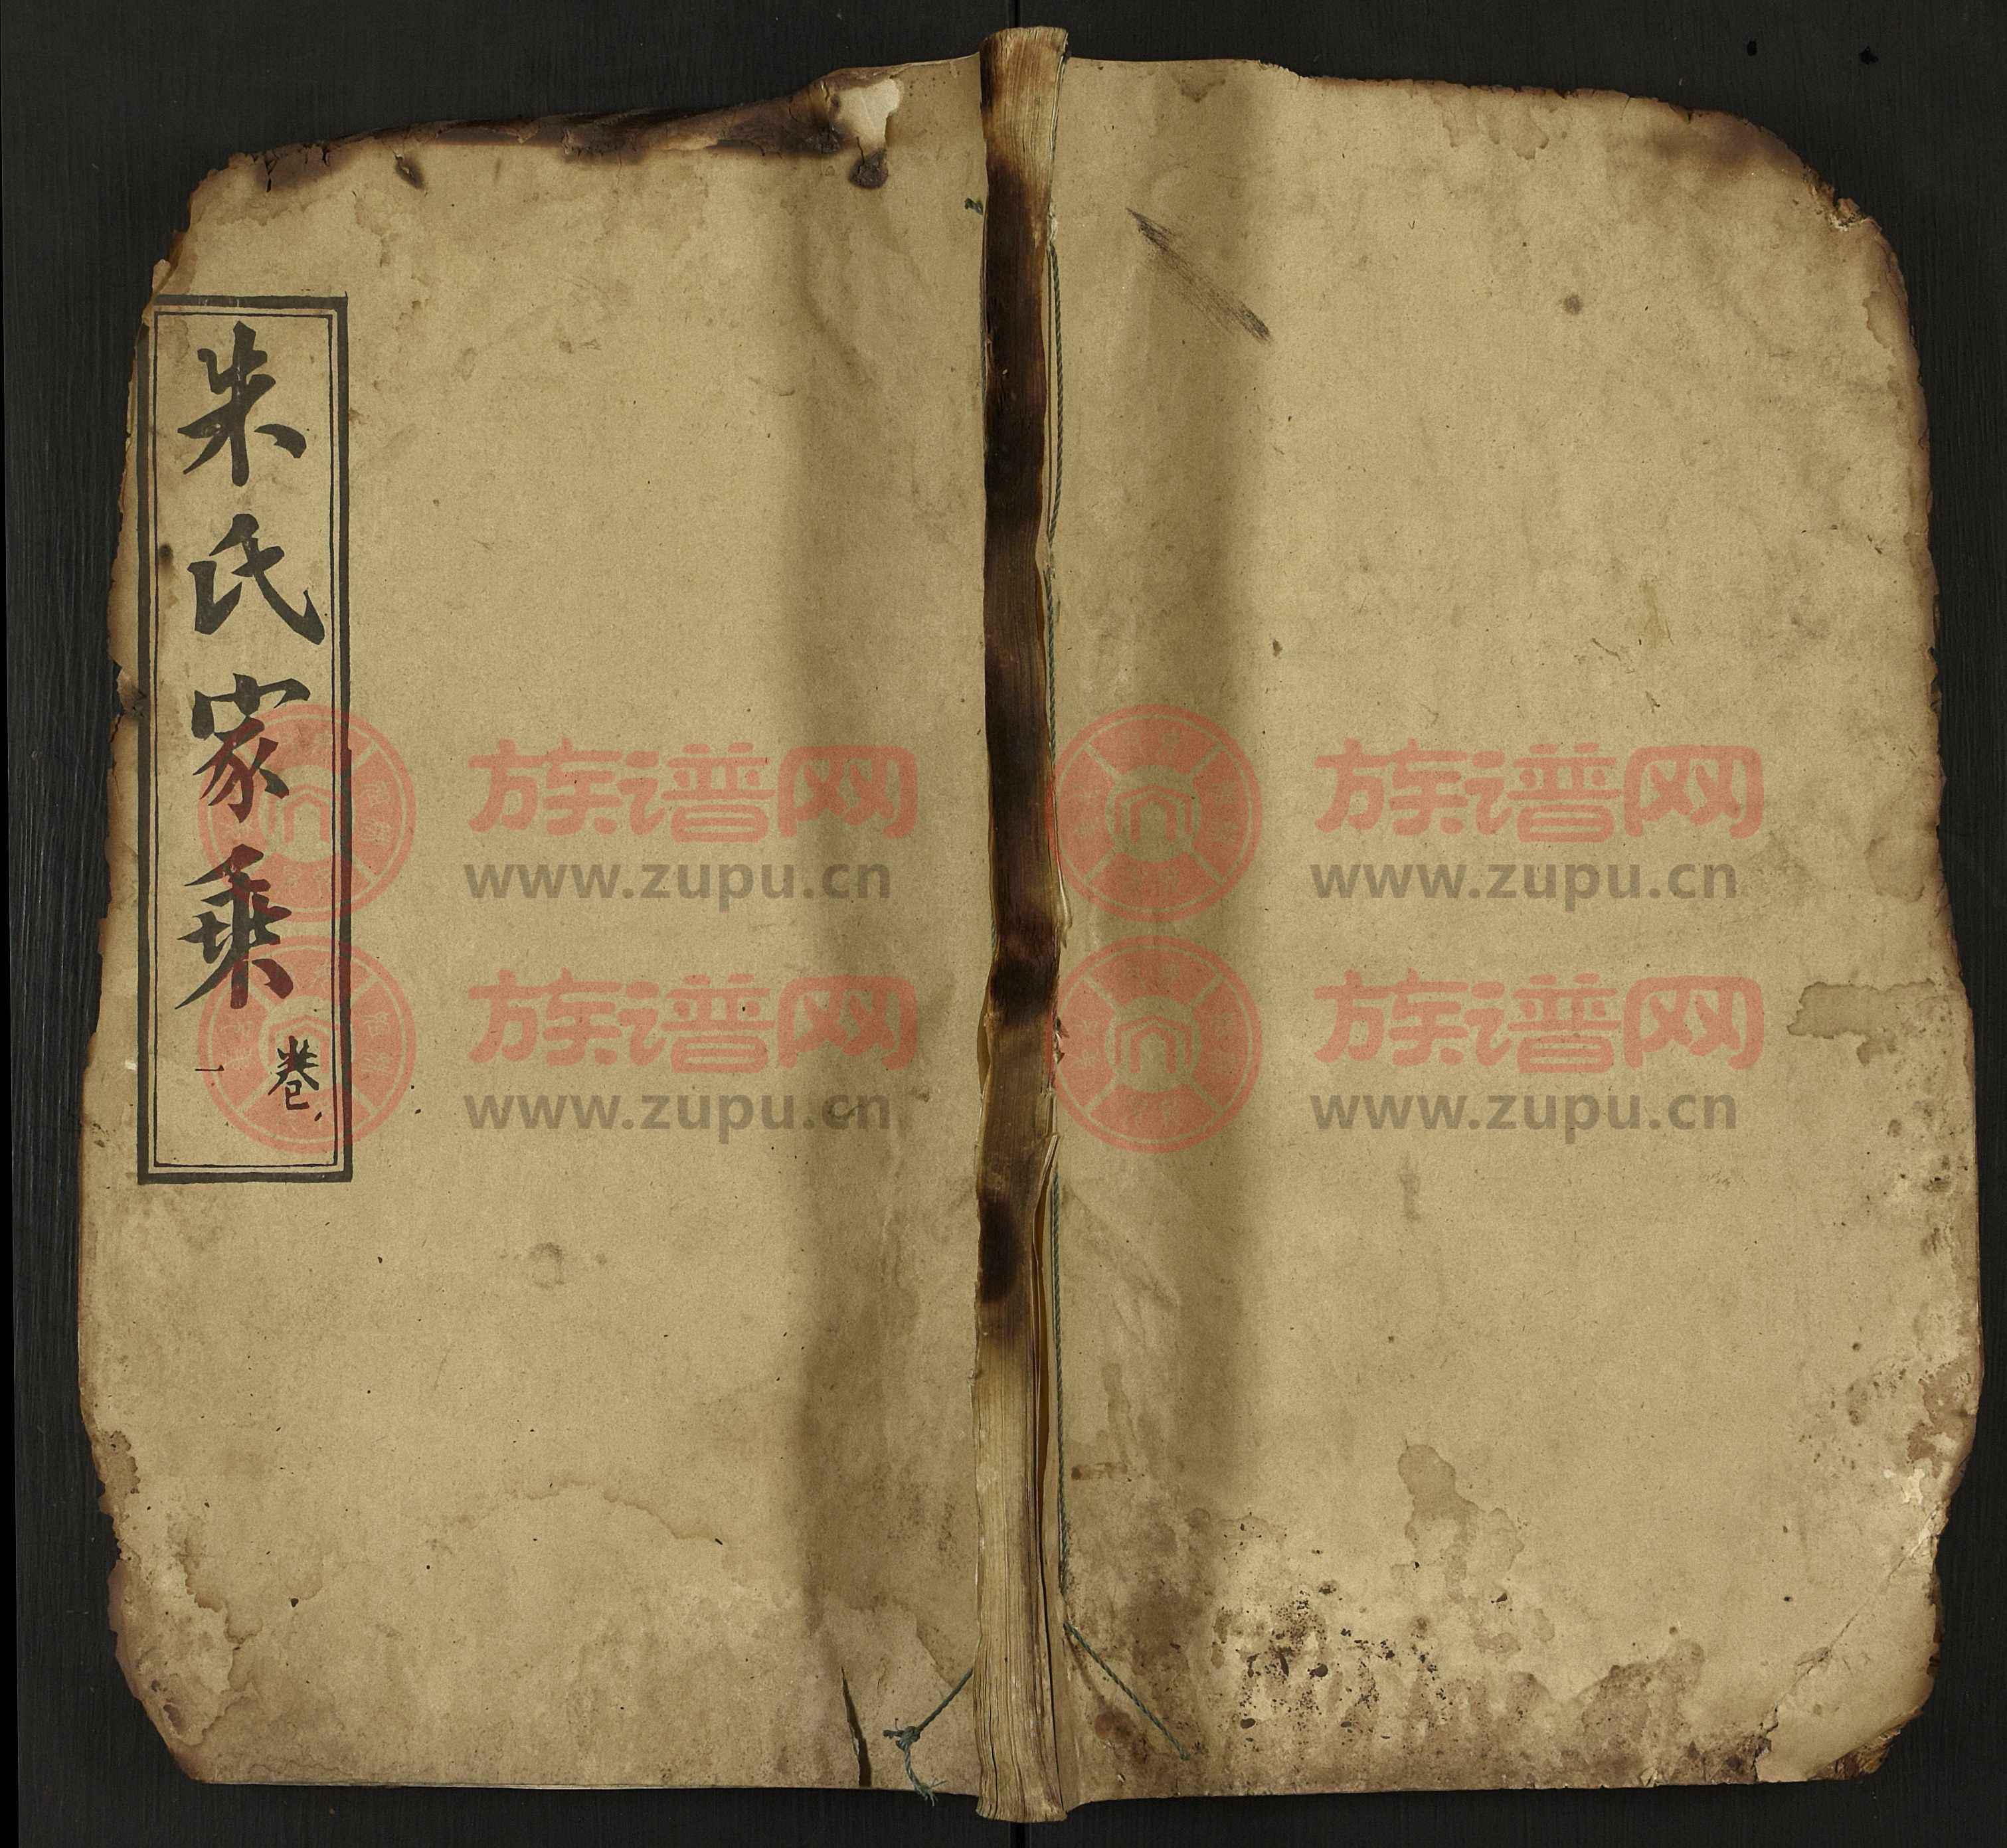 朱氏家乘
卷
一
族谱网
www.zupu.cn
族谱网
www.zupu.cn
族谱网
www.zupu.cn
族谱网
www.zupu.cn